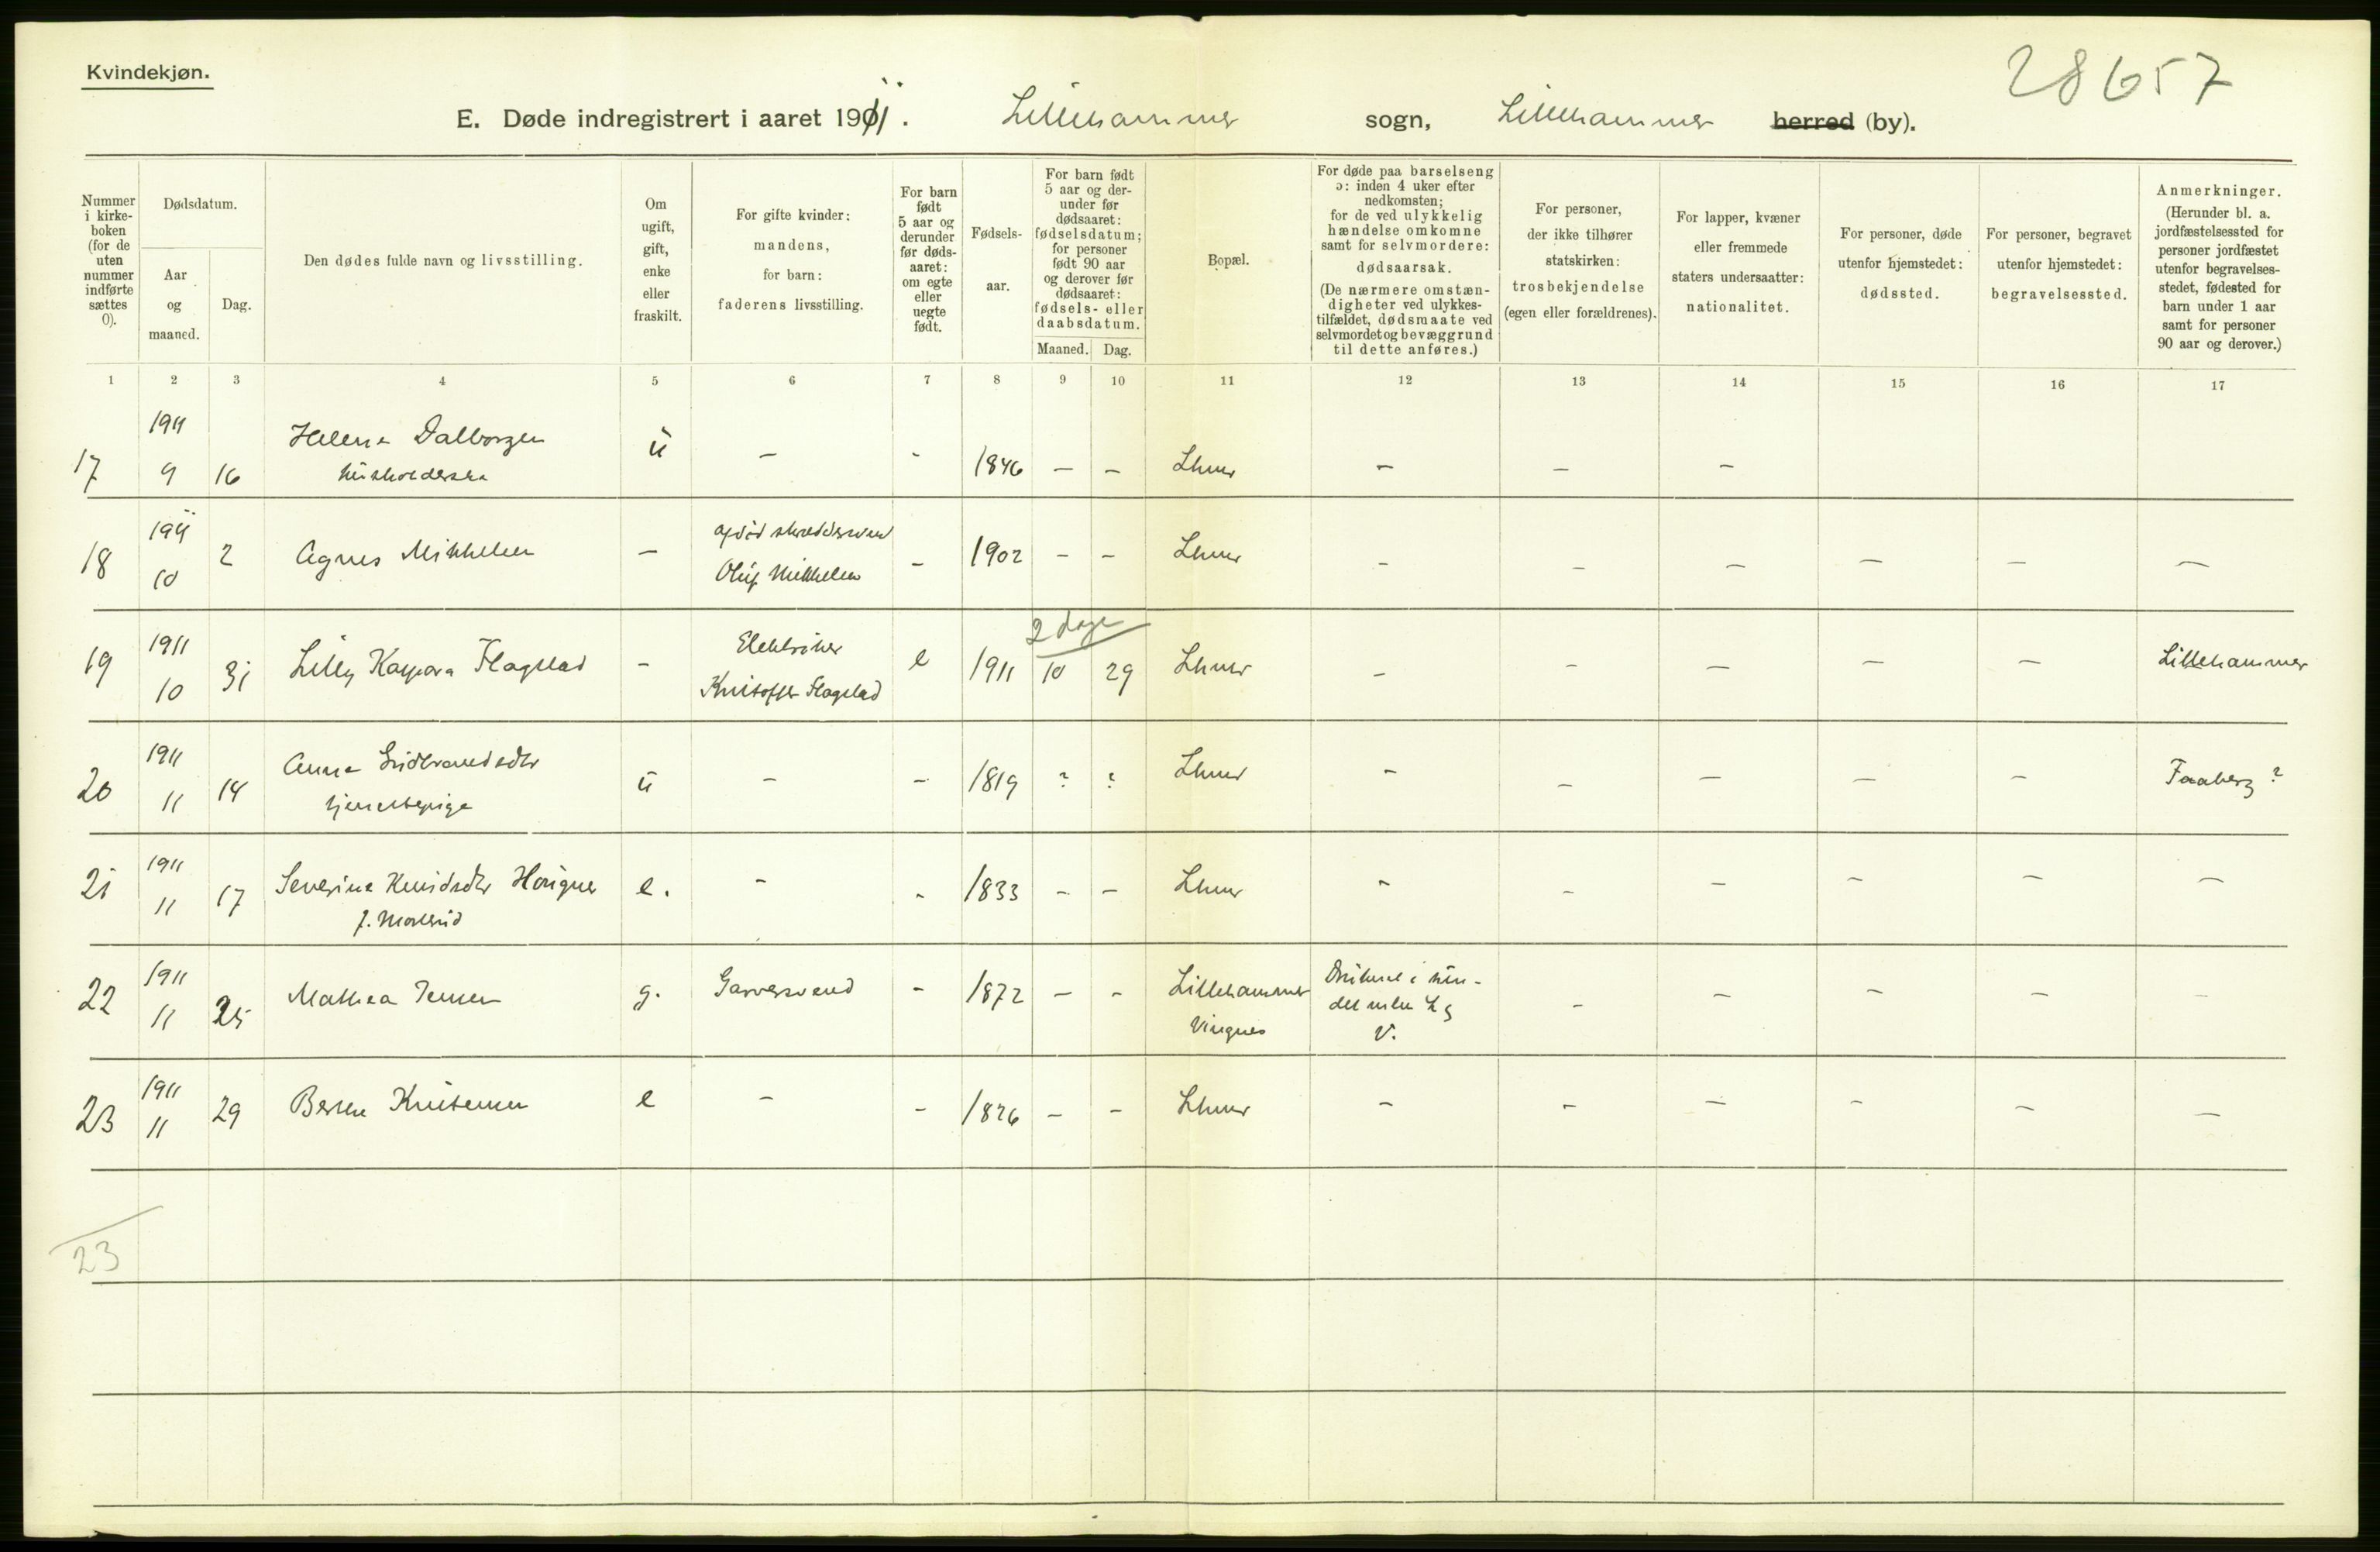 Kvindekjøn.
28657
E. Døde indregistrert i aaret 1911. Lillehammer sogn, Lillehammer herred (by).
Nummer i kirkeboken (for de uten nummer indførte sættes 0).
Dødsdatum.
Aar og maaned.
Dag.
Den dødes fulde navn og livsstilling.
Om ugift, gift, enke eller fraskilt.
For gifte kvinder: mandens, for barn: faderens livsstilling.
For barn født 5 aar og derunder før dødsaaret: om egte eller uegte født.
Fødselsaar.
For barn født 5 aar og derunder før dødsaaret: fødselsdatum; for personer født 90 aar og derover før dødsaaret: fødsels- eller daabsdatum.
Maaned. Dag.
Bopæl.
For døde paa barselseng ɔ: inden 4 uker efter nedkomsten; for de ved ulykkelig hændelse omkomne samt for selvmordere: dødsaarsak. (De nærmere omstændigheter ved ulykkestilfældet, dødsmaate ved selvmordet og bevæggrund til dette anføres.)
For personer, der ikke tilhører statskirken: trosbekjendelse (egen eller forældrenes).
For lapper, kvæner eller fremmede staters undersaatter: nationalitet.
For personer, døde utenfor hjemstedet: dødssted.
For personer, begravet utenfor hjemstedet: begravelsessted.
Anmerkninger. (Herunder bl. a. jordfæstelsessted for personer jordfæstet utenfor begravelsesstedet, fødested for barn under 1 aar samt for personer 90 aar og derover.)
1 2 3 4 5 6 7 8 9 10 11 12 13 14 15 16 17
17 1911 9 16 Helene Dalborgen husholderske u - - 1846 - - Lhmr - - -
18 1911 10 2 Agnes Mikkelsen - afdød skræddersvend Oluf Mikkelsen - 1902 - - Lhmr - - - - - -
2 dage
19 1911 10 31 Lilly Kaspara Flagstad - Elektriker Kristoffer Flagstad e 1911 10 29 Lhmr - - - - - Lillehammer
20 1911 11 14 Anne Gudbrandsdtr tjenestepige u - - 1819 ? ? Lhmr - - - - - Faaberg ?
21 1911 11 17 Severine Knudsdtr f. e. - - 1833 - - Lhmr - - - - - -
22 1911 11 25 Mathea Jensen g. Garversvend - 1872 - - Lillehammer Vingnes Druknet i sundet mlm L og V. - - - - -
23 1911 11 29 Berthe e - - 1826 - - Lhmr - - - - - -
23